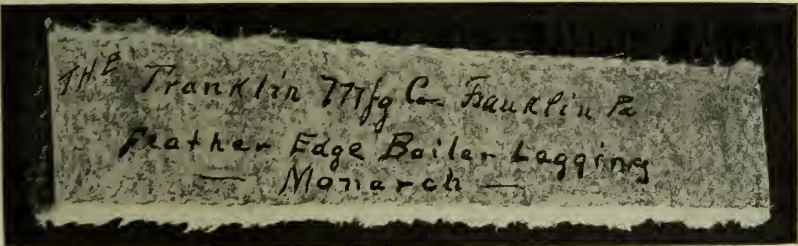 THE Franklin Mfg Co Franklin Pa
Feather Edge Boiler Lagging
— Monarch —